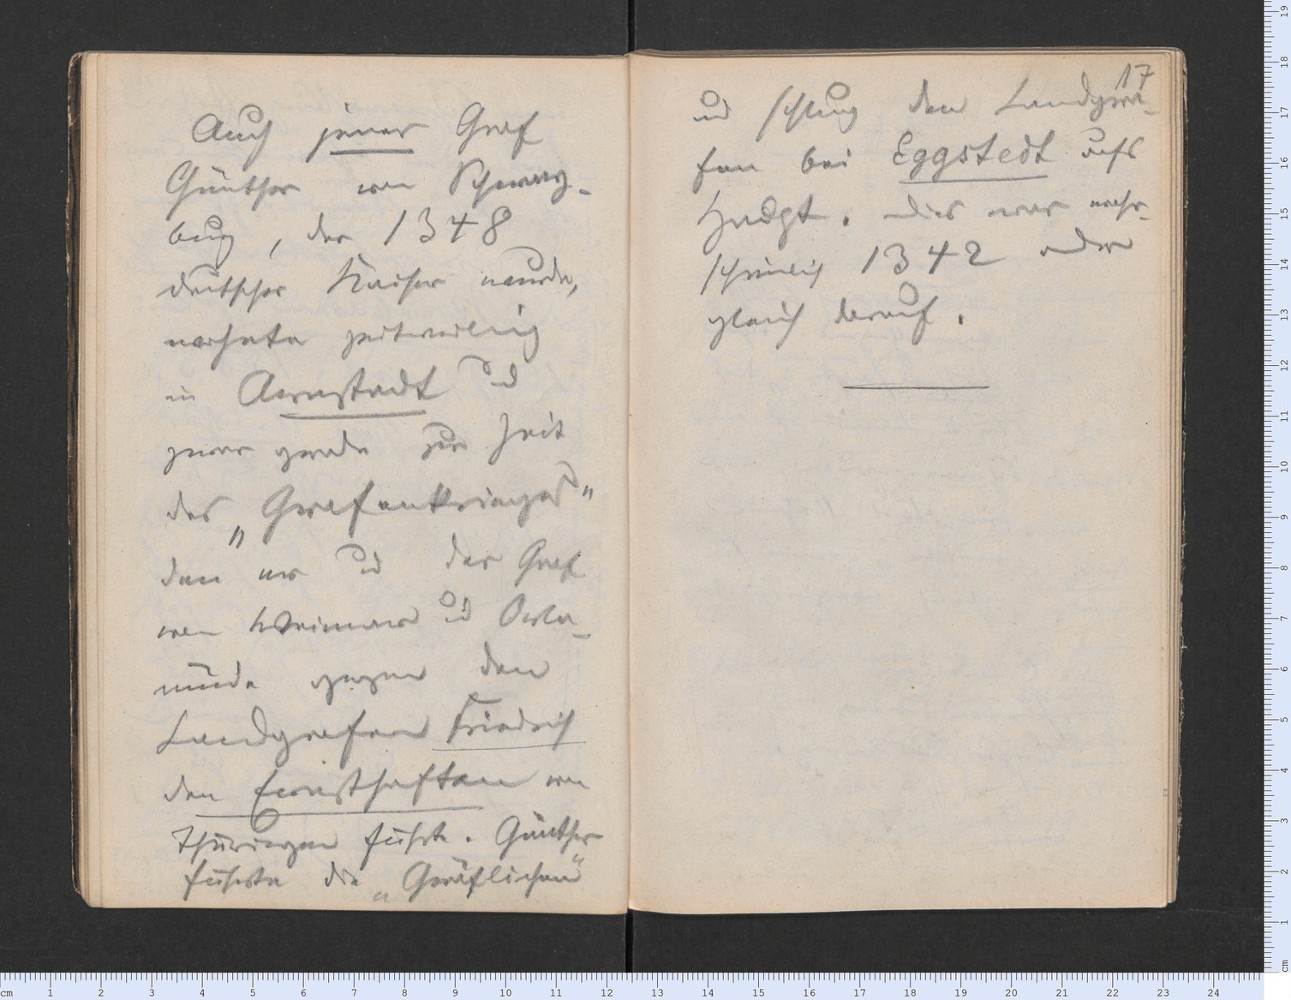 Auch jener Graf
Günther von Schwarz-
burg, der 1348
deutscher Kaiser wurde,
wohnte zeitweilig
in Arnstadt und
zwar grade zur Zeit
des „Grafenkrieges"
den er und der Graf
von Weimar und Orla-
münde gegen den
Landgrafen Friedrich
den Ernsthaften von
Thüringen führte. Günther
führte die „Gräflichen"
17
und schlug den Landgra-
fen bei Eggstedt aufs
Haupt. Dies war wahr-
scheinlich 1342 oder
gleich darauf.